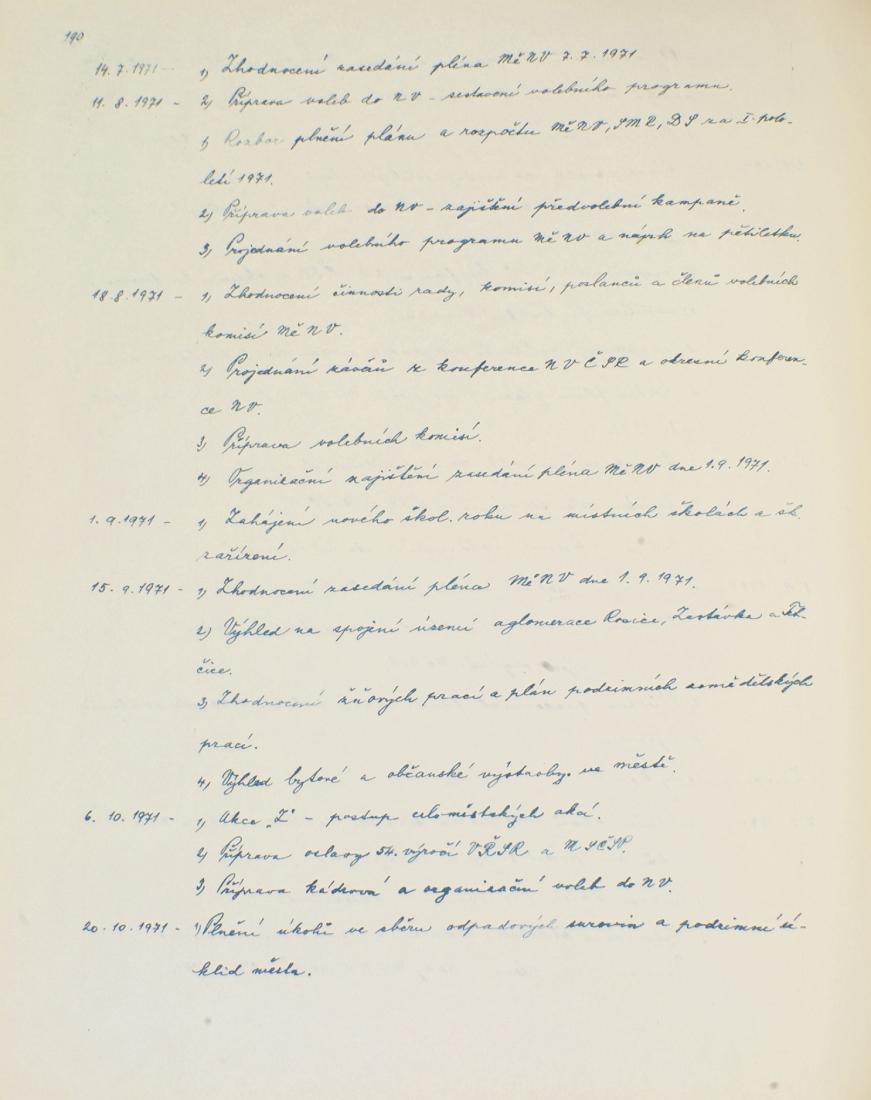 190
14.7.1971 - 1) Zhodnocení zasedání pléna MěNV 7.7.1971
11.8.1971 - 2) Příprava voleb do NV - sestavení volebního programu.
1) Rozbor plnění plánu a rozpočtu MěNV, SMR, DS za I. polo-
letí 1971.
2) Příprava voleb do NV - zajištění předvolební kampaně.
3) Projednání volebního programu MěNV a návrh na pětiletku.
18.8.1971 - 1) Zhodnocení činnosti rady, komisí, poslanců a členů volebních
komisí MěNV.
2) Projednání závěrů z konference NV ČSR a okresní konferen-
ce NV.
3) Příprava volebních komisí.
4) Organizační zajištění zasedání pléna MěNV dne 1.9.1971.
1.9.1971 - 1) Zahájení nového škol. roku na místních školách a šk.
zařízení.
15.9.1971 - 1) Zhodnocení zasedání pléna MěNV dne 1.9.1971.
2) Výhled na spojení území aglomerace Rosice, Zastávka a Tet-
čice.
3) Zhodnocení žňových prací a plán podzimních zemědělských
prací.
4) Výhled bytové a občanské výstavby ve městě.
6.10.1971 - 1) Akce "Z" - postup celoměstských akcí.
2) Příprava oslavy 54. výročí VŘSR a MSČSP.
3) Příprava kádrová a organizační voleb do NV.
20.10.1971 - 1) Plnění úkolů ve sběru odpadových surovin a podzimní ú-
klid města.